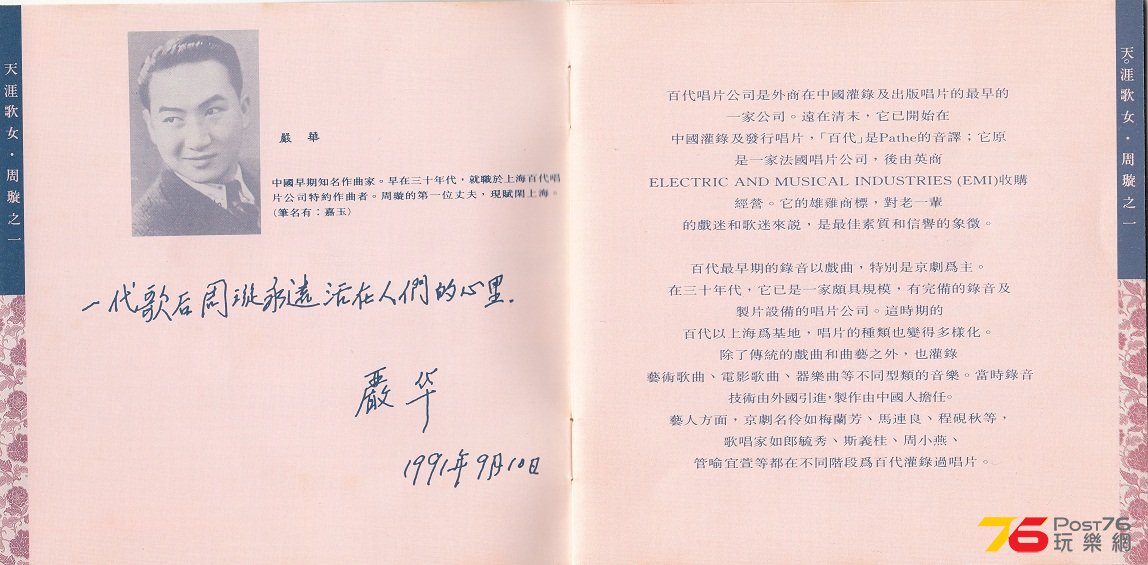 天涯歌女・周璇之一
嚴 華
中國早期知名作曲家。早在三十年代，就職於上海百代唱
片公司特約作曲者。周璇的第一位丈夫，現賦閑上海。
(筆名有：嘉玉)
一代歌后周璇永遠活在人們的心里.
嚴华
1991年9月10日
百代唱片公司是外商在中國灌錄及出版唱片的最早的
一家公司。遠在清末，它已開始在
中國灌錄及發行唱片，「百代」是Pathe的音譯；它原
是一家法國唱片公司，後由英商
ELECTRIC AND MUSICAL INDUSTRIES (EMI)收購
經營。它的雄雞商標，對老一輩
的戲迷和歌迷來説，是最佳素質和信譽的象徵。
百代最早期的錄音以戲曲，特別是京劇爲主。
在三十年代，它已是一家頗具規模，有完備的錄音及
製片設備的唱片公司。這時期的
百代以上海爲基地，唱片的種類也變得多樣化。
除了傳統的戲曲和曲藝之外，也灌錄
藝術歌曲、電影歌曲、器樂曲等不同型類的音樂。當時錄音
技術由外國引進，製作由中國人擔任。
藝人方面，京劇名伶如梅蘭芳、馬連良、程硯秋等，
歌唱家如郎毓秀、斯義桂、周小燕、
管喻宜萱等都在不同階段爲百代灌錄過唱片。
天。涯歌女・周璇之一
76 POST76
玩樂網